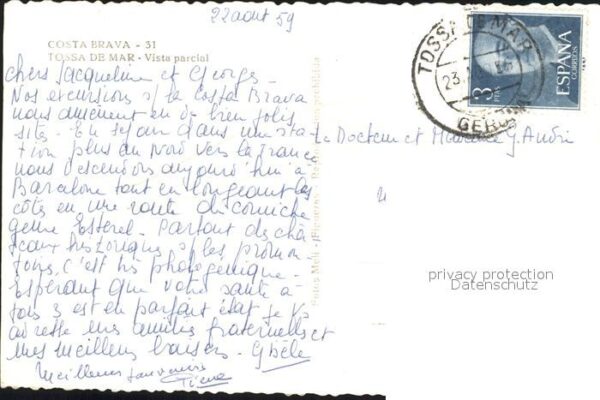 22 aout 59
COSTA BRAVA - 31
TOSSA DE MAR - Vista parcial
Chers Jacqueline et Georges -
Nos excursions s/ la Costa Brava
nous amènent en de bien jolis
sites. En séjour dans une sta-
tion plus au Nord vers la France
nous descendons aujourd'hui à
Barcelone tout en longeant les
côtes en une route de corniche
genre Esterel. Partout des châ-
teaux historiques s/ les promon-
toires, c'est très photogénique.
Espérant que votre santé à
tous 3 est en parfait état je vs
adresse mes amitiés fraternelles et
mes meilleurs baisers. Gisèle
Meilleurs souvenirs
Pierre
Le Docteur et Madame G. André
TOSSA DE MAR
23
GERONA
3
PTAS
ESPAÑA
CORREOS
privacy protection
Datenschutz